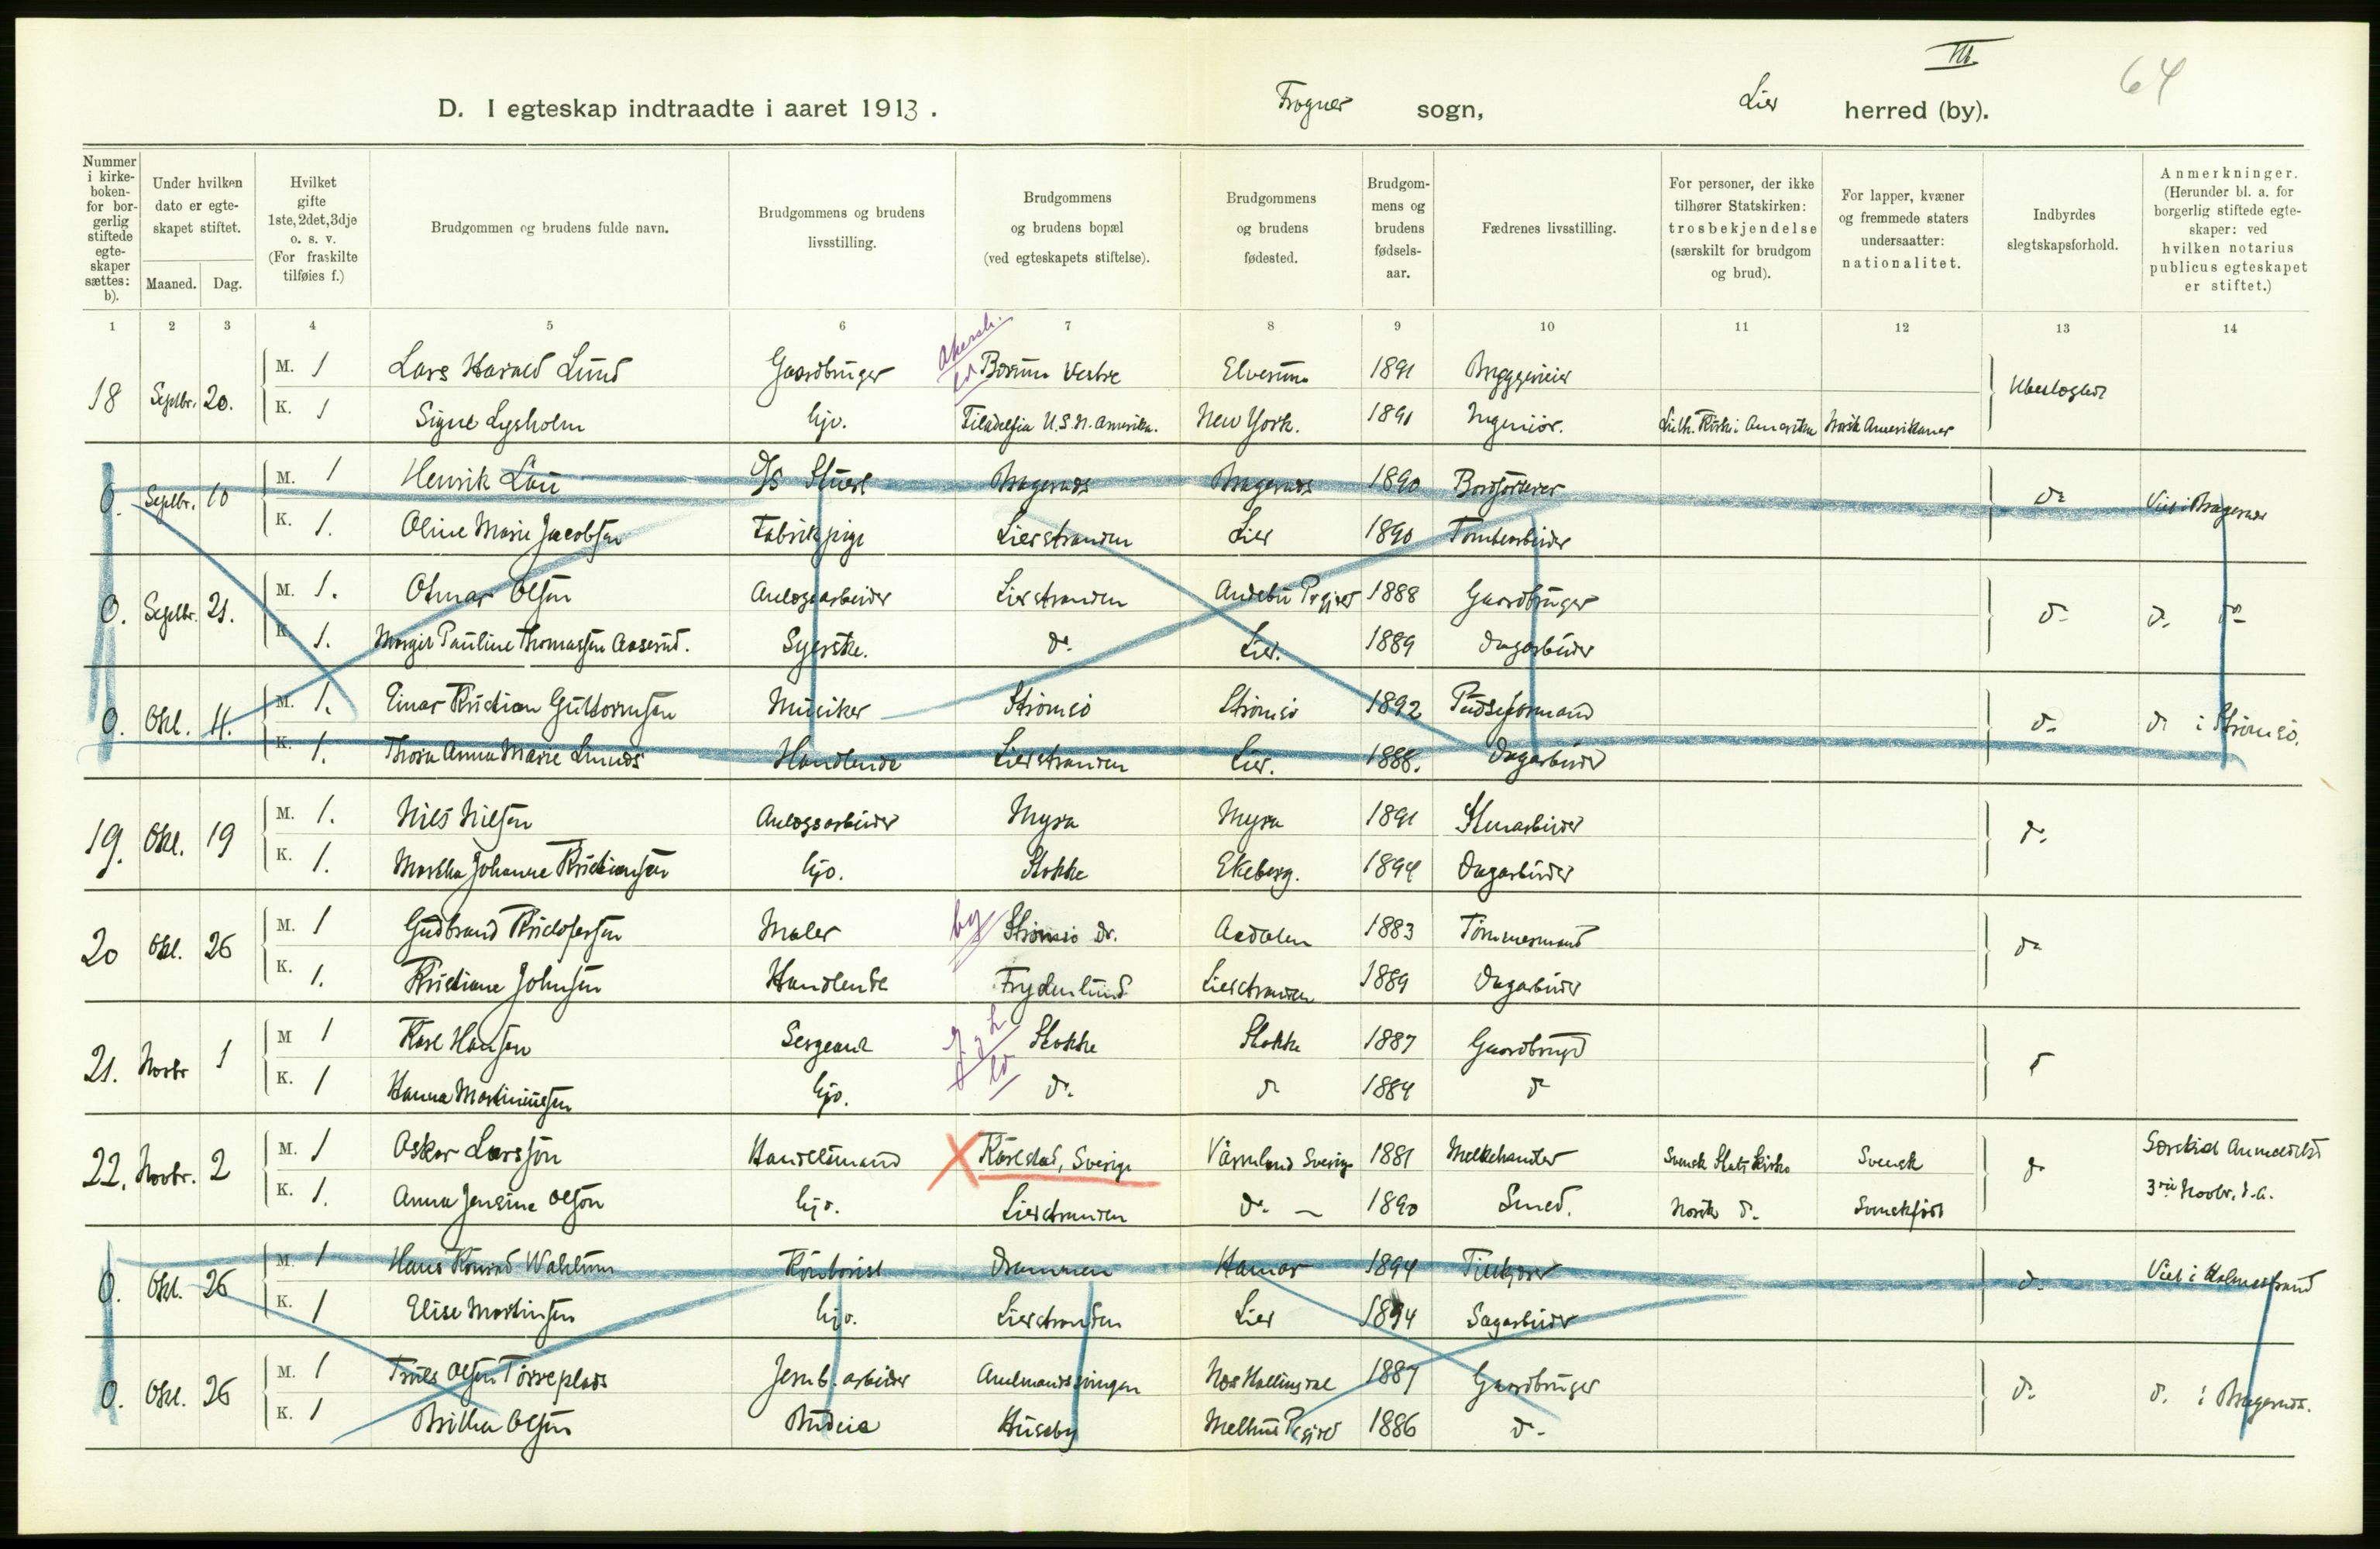 III.
64
D. I egteskap indtraadte i aaret 1913. Frogner sogn, Lier herred (by).
Nummer i kirke-boken- for bor-gerlig stiftede egte-skaper sættes: b).
Under hvilken dato er egte-skapet stiftet.
Maaned. Dag.
Hvilket gifte 1ste, 2det, 3dje o. s. v. (For fraskilte tilføies f.)
Brudgommen og brudens fulde navn.
Brudgommens og brudens livsstilling.
Brudgommens og brudens bopæl (ved egteskapets stiftelse).
Brudgommens og brudens fødested.
Brudgom-mens og brudens fødsels-aar.
Fædrenes livsstilling.
For personer, der ikke tilhører Statskirken: trosbekjendelse (særskilt for brudgom og brud).
For lapper, kvæner og fremmede staters undersaatter: nationalitet.
Indbyrdes slegtskapsforhold.
Anmerkninger. (Herunder bl. a. for borgerlig stiftede egte-skaper: ved hvilken notarius publicus egteskapet er stiftet.)
1 2 3 4 5 6 7 8 9 10 11 12 13 14
18 Septbr. 20. M. 1 Lars Harald Lund Gaardbruger Akersh. Bærum Vestre Elverum 1891 Ubeslegtet
K. 1 Signe Lysholm hjv. Filadelfia U.S.N. Amerika. New York. 1891 Ingeniör. Luth. Kirke i Amerika Norsk Amerikaner
0. Septbr. 10 M. 1 Henrik Lau Bragernes Bragernes 1890 do Viet i Bragernes
K. 1. Oline Marie Jacobsen Fabrikpige Lierstranden Lier 1890 Tomtearbeider
0. Septbr. 21. M. 1. Otmar Olsen Anlægsarbeider Lierstranden Andebu Prgjeld 1888 Gaardbruger do do do
K. 1. Margit Pauline Thomassen Aaserud. Syerske. do Lier. 1889 Dagarbeider
0. Okt. 4. M. 1. Einar Kristian Guttormsen Musiker Strömsö Strömsö 1892 do do i Strömsö.
K. 1. Thora Anna Marie Handlende Lierstranden Lier. 1888. Dagarbeider
19. Okt. 19 M. 1. Nils Nilsen Anlægsarbeider Myra Myra 1891 Stenarbeider do
K. 1. Martha Johanne Kristiansen hjv. Stokke Ekeberg. 1894 Dagarbeider
20 Okt. 26 M. 1 Gudbrand Kristofersen Maler by Strömsö Dr. Aadalen 1883 Tömmermand do
K. 1. Kristiane Johnsen Handlende Frydenlund Lierstranden 1889 Dagarbeider
21. Novbr 1 M 1 Karl Hansen Sergeant Stokke Stokke 1887 Gaardbruger
K. 1 Hanna Martiniusen hjv. do do 1884 do
22. Novbr. 2 M. 1 Oskar Larsson Handelsmand X Karlstad, Sverige Värmland Sverige 1881 Melkehandler Svensk Stats Kirke Svensk do Særskilt Anmeldelse
K. 1. Anna Jensine Olson hjv. Lierstranden do — 1890 Smed. Norsk do Svenskfödt 3die Novbr. d.a.
0. Okt. 26 M. 1 Hans Konrad Wahlum Kontorist Drammen Hamar 1894 do Viet i Holmestrand
K. 1 Elise Martinsen hjv. Lierstranden Lier 1894 Sagarbeider
0. Okt. 26 M. 1 Truls Olsen Jernb. arbeider Amtmandssvingen Nes Hallingdal 1887 Gaardbruger do do i Bragernes.
K. 1 Britha Olsen Budeie Huseby Melhus Prgjeld 1886 do